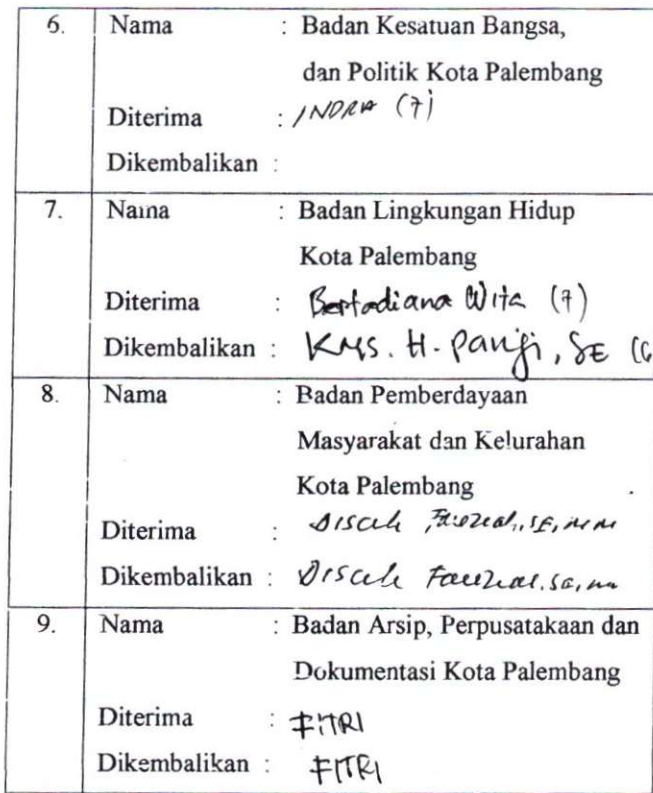 6. Nama : Badan Kesatuan Bangsa,
dan Politik Kota Palembang
Diterima : INDRA (7)
Dikembalikan :
7. Nama : Badan Lingkungan Hidup
Kota Palembang
Diterima : Bertadiana Wita (7)
Dikembalikan : KMS. H. Panji, SE (6
8. Nama : Badan Pemberdayaan
Masyarakat dan Kelurahan
Kota Palembang
Diterima : SE, MM
Dikembalikan :
9. Nama : Badan Arsip, Perpusatakaan dan
Dokumentasi Kota Palembang
Diterima : FITRI
Dikembalikan : FITRI